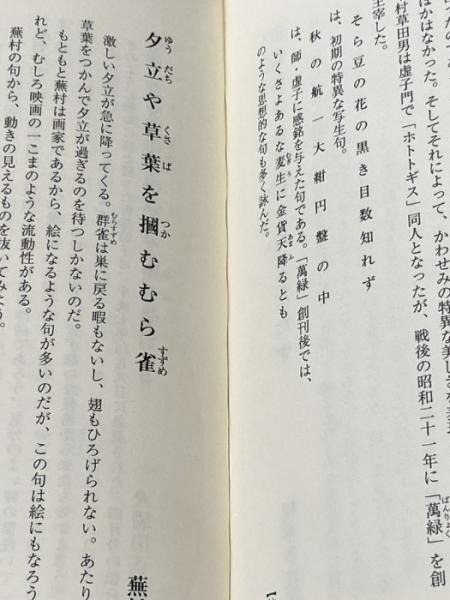 ほかはなかった。そしてそれによって、かわせみの特異な美しさを
村草田男は虚子門で「ホトトギス」同人となったが、戦後の昭和二十一年に「萬緑」を創
主宰した。
そら豆の花の黒き目数知れず
は、初期の特異な写生句。
秋の航一大紺円盤の中
は、師・虚子に感銘を与えた句である。「萬緑」創刊後では、
いくさよあるな麦生に金貨天降るとも
のような思想的な句も多く詠んだ。
夕立や草葉を摑むむら雀
蕪
激しい夕立が急に降ってくる。群雀は巣に戻る暇もないし、翅もひろげられない。あたり
草葉をつかんで夕立が過ぎるのを待つしかないのだ。
もともと蕪村は画家であるから、絵になるような句が多いのだが、この句は絵にもなろう
れど、むしろ映画の一こまのような流動性がある。
蕪村の句から、動きの見えるものを抜いてみよう。